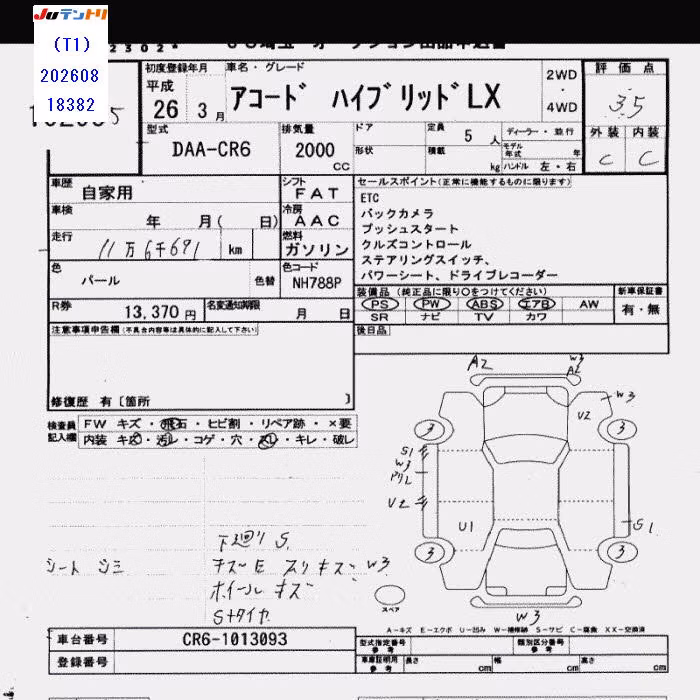 Juテントリ
(T1)
202608
18382
初度登録年月
平成
26 3月
車名・グレード
アコード ハイブリッドLX
2WD
・
4WD
評価点
3.5
外装 内装
C C
型式
DAA-CR6
排気量
2000
CC
ドア
形状
定員
5人
積載
kg
ディーラー・並行
モデル年式 年
ハンドル 左・右
車歴
自家用
シフト
FAT
車検
年 月( 日)
冷房
AAC
走行
11万6千691 km
燃料
ガソリン
色
パール
色替
色コード
NH788P
R券
13,370円
名変通知期限
月 日
セールスポイント(正常に機能するものに限ります)
ETC
バックカメラ
プッシュスタート
クルズコントロール
ステアリングスイッチ、
パワーシート、ドライブレコーダー
装備品(純正品に限り○をつけてください)
PS PW ABS エアB AW
SR ナビ TV カワ
新車保証書
有・無
後日品
注意事項申告欄(不具合内容等は具体的に記入して下さい)
修復歴 有〔箇所 〕
検査員
記入欄
FW キズ・飛石・ヒビ割・リペア跡・×要
内装 キズ・汚レ・コゲ・穴・スレ・キレ・破レ
A2
W3
A2
W3
U2
3
3
S1
W3
U2
U1
S1
3
3
W3
スペア
下廻り S
シート シミ
キズ・E スリキズ・W3
ホイール キズ
S+タイヤ
A-キズ E-エクボ U-凹み W-補修跡 S-サビ C-腐食 XX-交換済
車台番号
CR6-1013093
登録番号
型式指定番号
参考
類別区分番号
参考
車庫証明用
参考
長さ cm
幅 cm
高さ cm